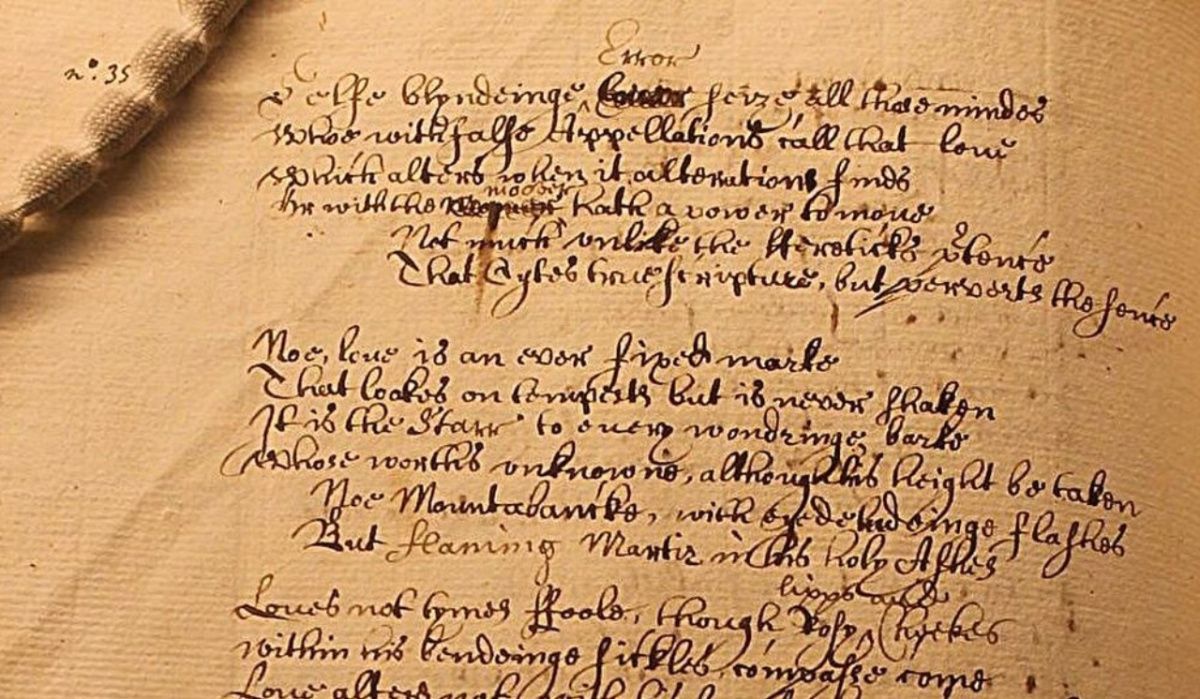 nº. 35
Error
Selfe blyndeinge seize all those mindes
Whoe with false Appellations call that loue
Which alters when it alterations finds
moover
Or with the hath a power to moue
Not much unlike the Hereticks ptence
That Cytes true scripture, but perverts the sence
Noe, loue is an ever fixed marke
That lookes on tempests but is never shaken
It is the Starr to euery wondringe barke
Whose worths unknowne, although his height be taken
Noe Mountabancke, with eyedeludeinge flashes
But flaming Martir in his holy Ashes
lipps and
Loues not tymes ffoole, though Rosy Cheekes
within his bendeinge sickles compasse come
Loue alters not with his